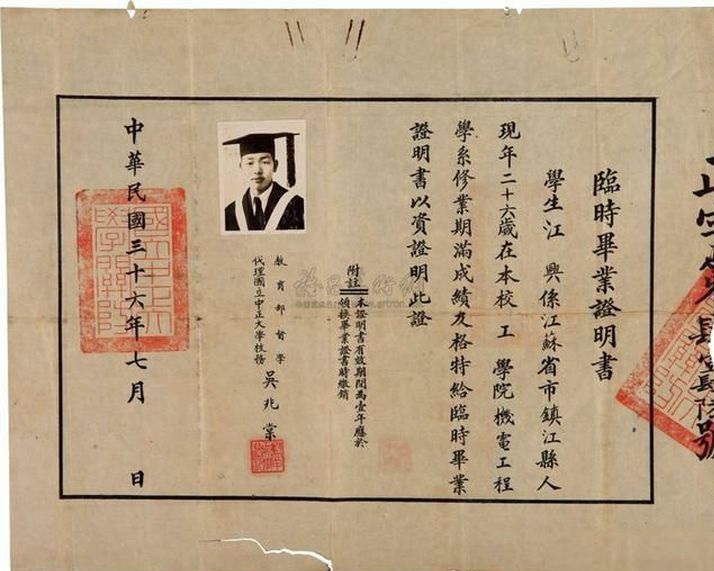 臨時畢業證明書
學生江 興係江蘇省市鎮江縣人
現年二十六歲在本校 工 學院機電工程
學系修業期滿成績及格特給臨時畢業
證明書以資證明此證
附註
本證明書有效期間為壹年應於
領換畢業證書時繳銷
教育部督學
代理國立中正大學校務
吳兆棠
中華民國三十六年七月 日